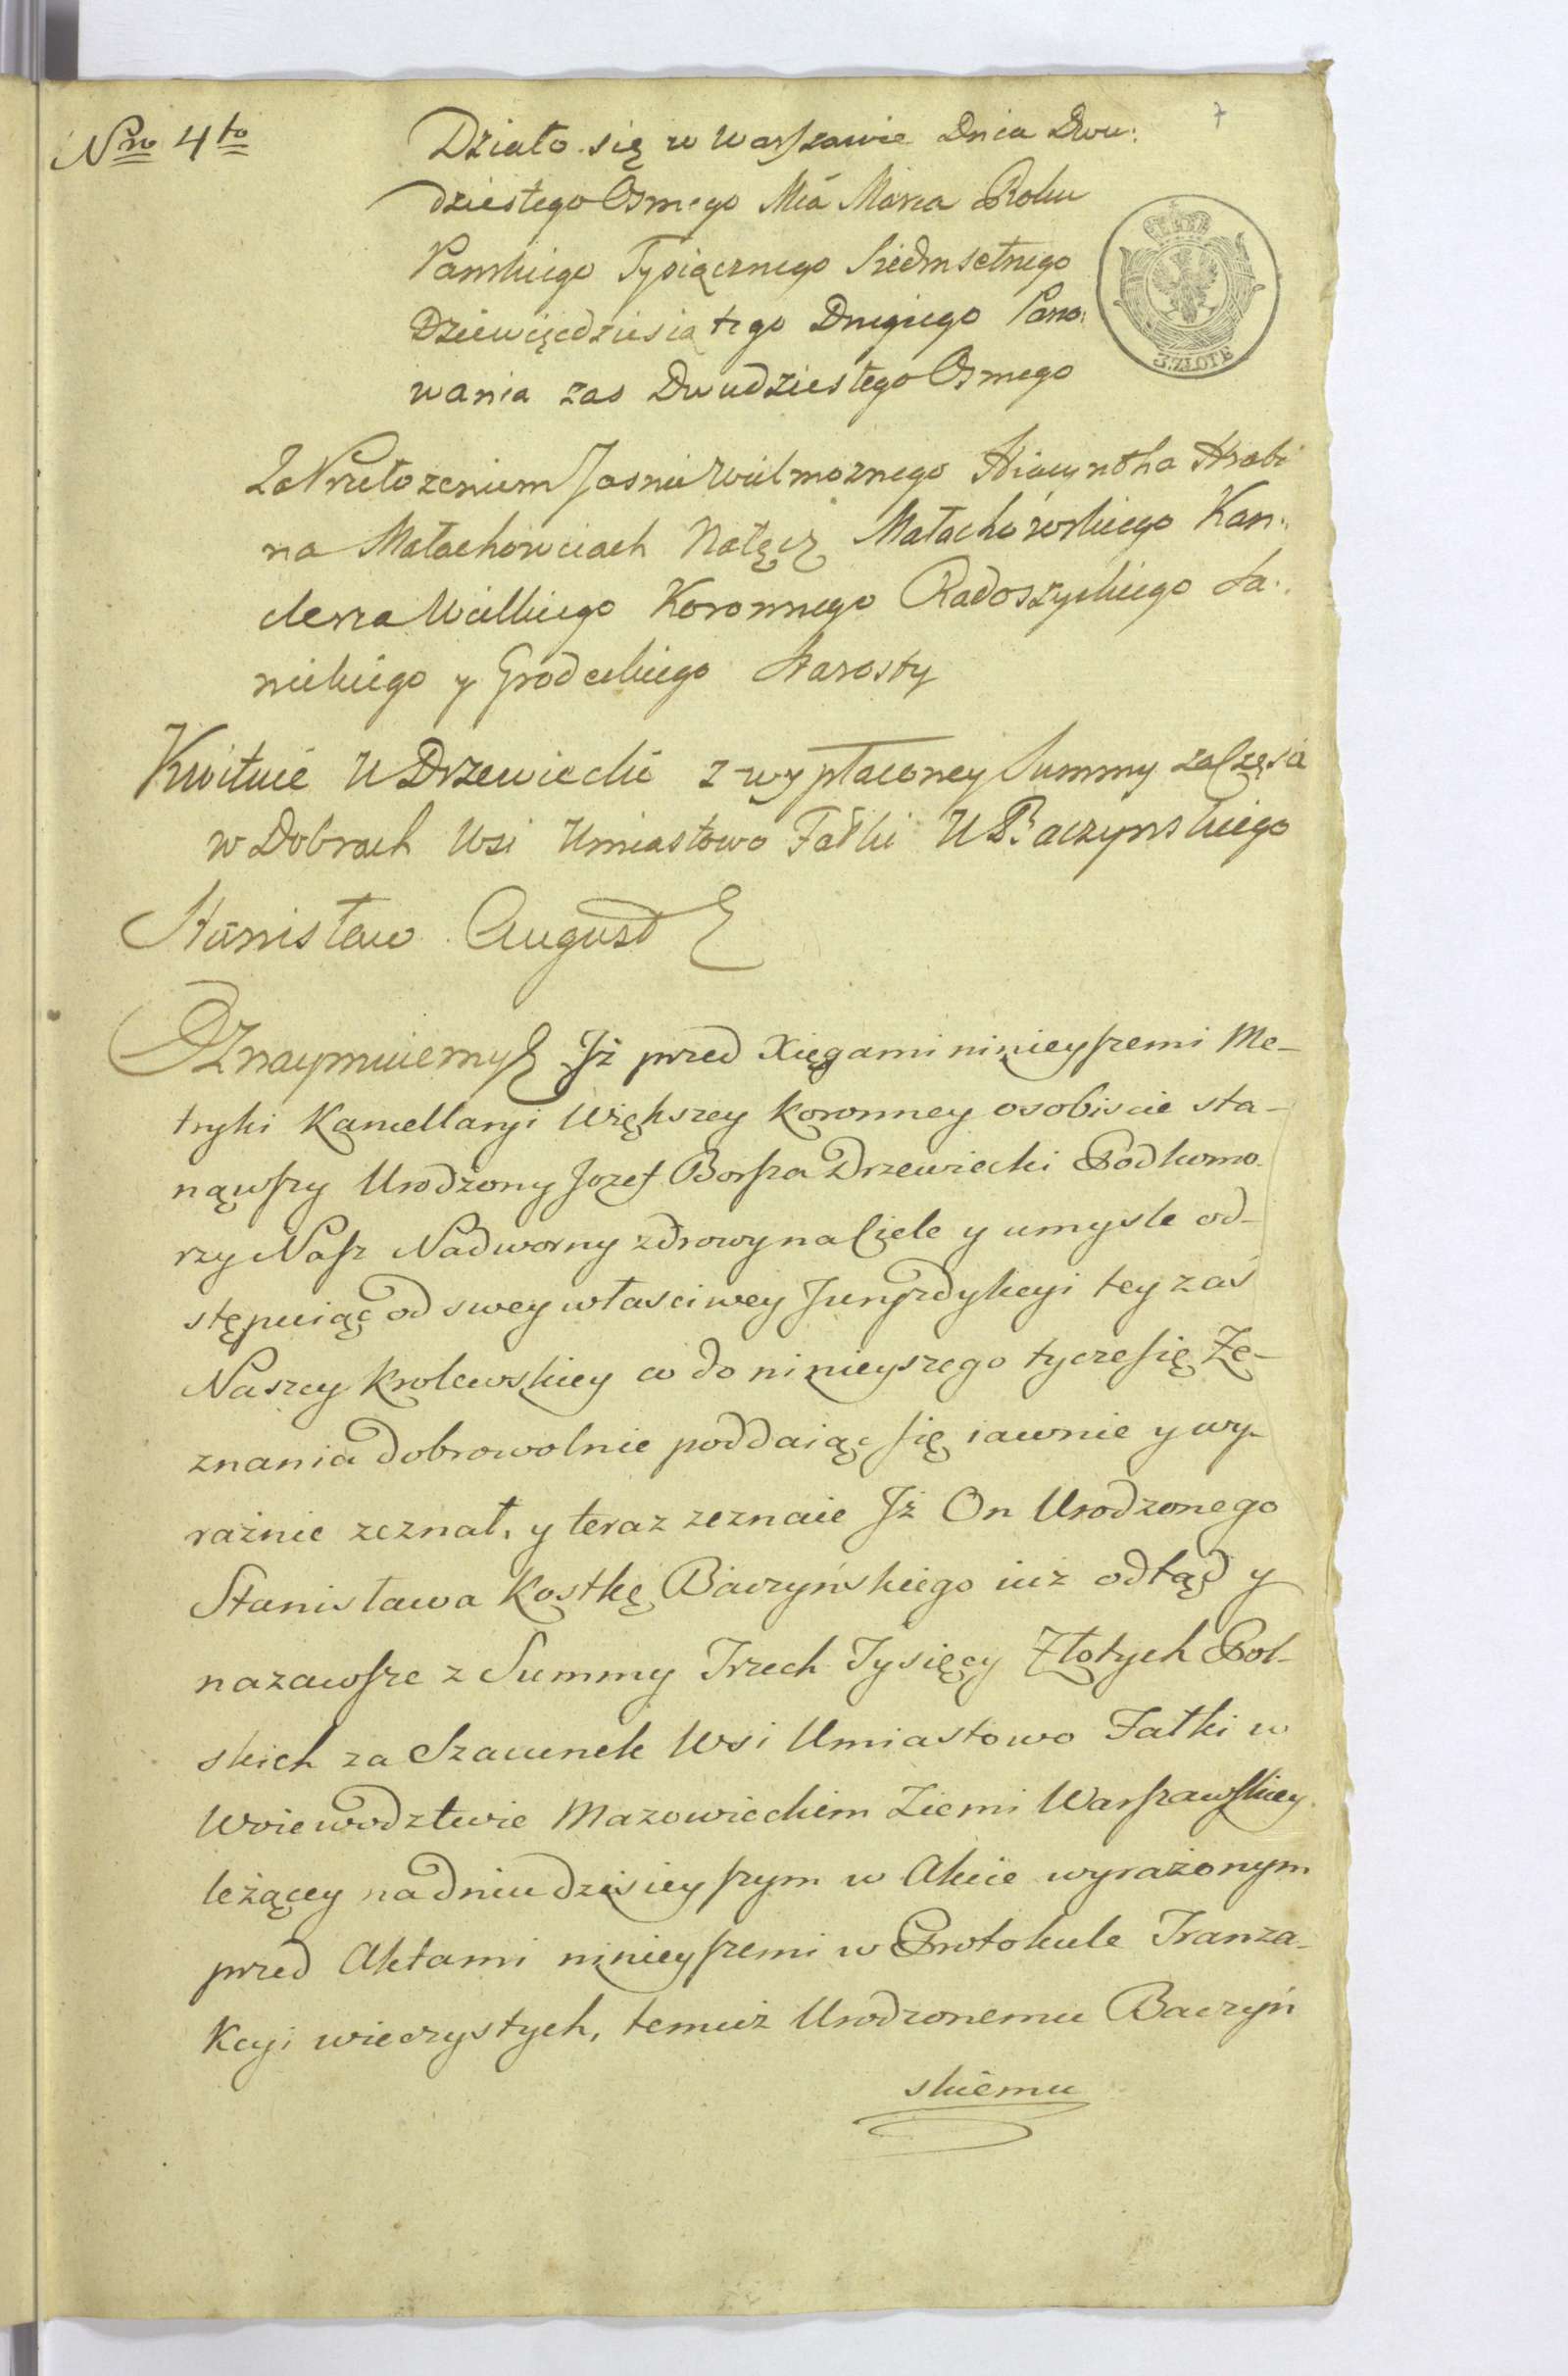 Nro 4to
7
Działo się w Warszawie Dnia Dwu:
dziestego Osmego Mca Marca Roku
Pańskiego Tysiącznego Siedmsetnego
Dziewięcdziesiątego Drugiego Pano:
wania zas Dwudziestego Osmego
3. ZŁOTE
Za Przełożeniem Jasnie Wielmoznego Hiacyntha Hrabi
na Małachowicach Nałęcz Małachowskiego Kan:
clerza Wielkiego Koronnego Radoszyckiego Sa:
nickiego y Grodeckiego Starosty
Kwituie U Drzewiecki z wypłaconey Summy za Częsci
w Dobrach Wsi Umiastowo Fałki U Baczynskiego
Stanisław August
Oznaymuiemy Iż przed Xięgami ninieyszemi Me-
tryki Kancellaryi Większey Koronney osobiscie sta-
nąwszy Urodzony Jozef Borsza Drzewiecki Podkomo-
rzy Nasz Nadworny zdrowy na Ciele y umysle od-
stępuiąc od swey własciwey Juryzdykcyi tey zaś
Naszey Krolewskiey co do ninieyszego tycze się Ze-
znania dobrowolnie poddaiąc się iawnie y wy-
raźnie zeznał, y teraz zeznaie Iż On Urodzonego
Stanisława Kostkę Baczyńskiego iuz odtąd y
nazawsze z Summy Trzech Tysięcy Złotych Pol-
skich za Szacunek Wsi Umiastowo Fałki w
Woiewodztwie Mazowieckim Ziemi Warszawskiey
leżącey na dniu dzisieyszym w Akcie wyrażonym
przed Aktami ninieyszemi w Protokule Tranza-
kcyi wieczystych, temuż Urodzonemu Baczyń
skiemu